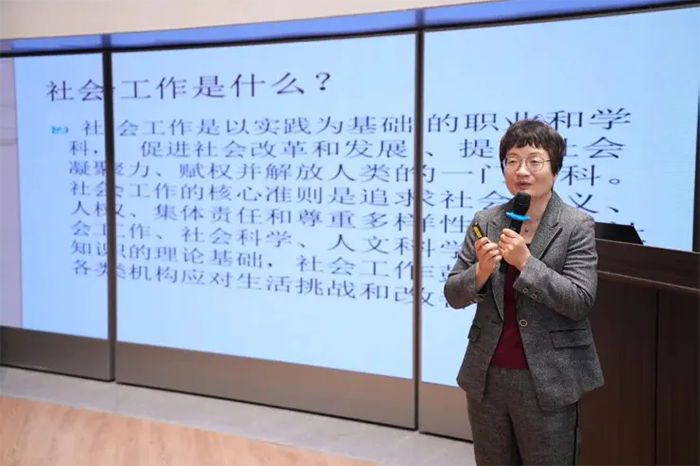 社会工作是什么？
社会工作是以实践为基础的职业和学
科， 促进社会改革和发展、提 社会
凝聚力、赋权并解放人类的一门 科。
社会工作的核心准则是追求社 义、
人权、集体责任和尊重多样性
会工作、社会科学、人文科学
知识的理论基础，社会工作
各类机构应对生活挑战和改